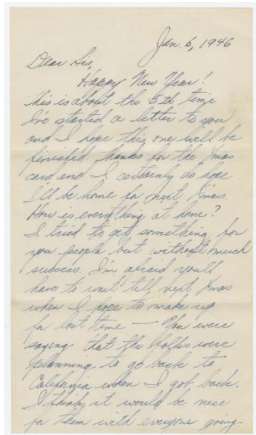 Jan. 6, 1946
Dear Sis,
Happy New Year!
This is about the 5th time
I've started a letter to you
and I hope this one will be
finished. Thanks for the Xmas
card and I certainly do hope
I'll be home for next Xmas.
How is everything at home?
I tried to get something for
you people but without much
success. I'm afraid you'll
have to wait till next Xmas
when I hope to make up
for lost time — You were
saying that the folks were
planning to go back to
California when I got back.
I think it would be nice
for them with everyone going